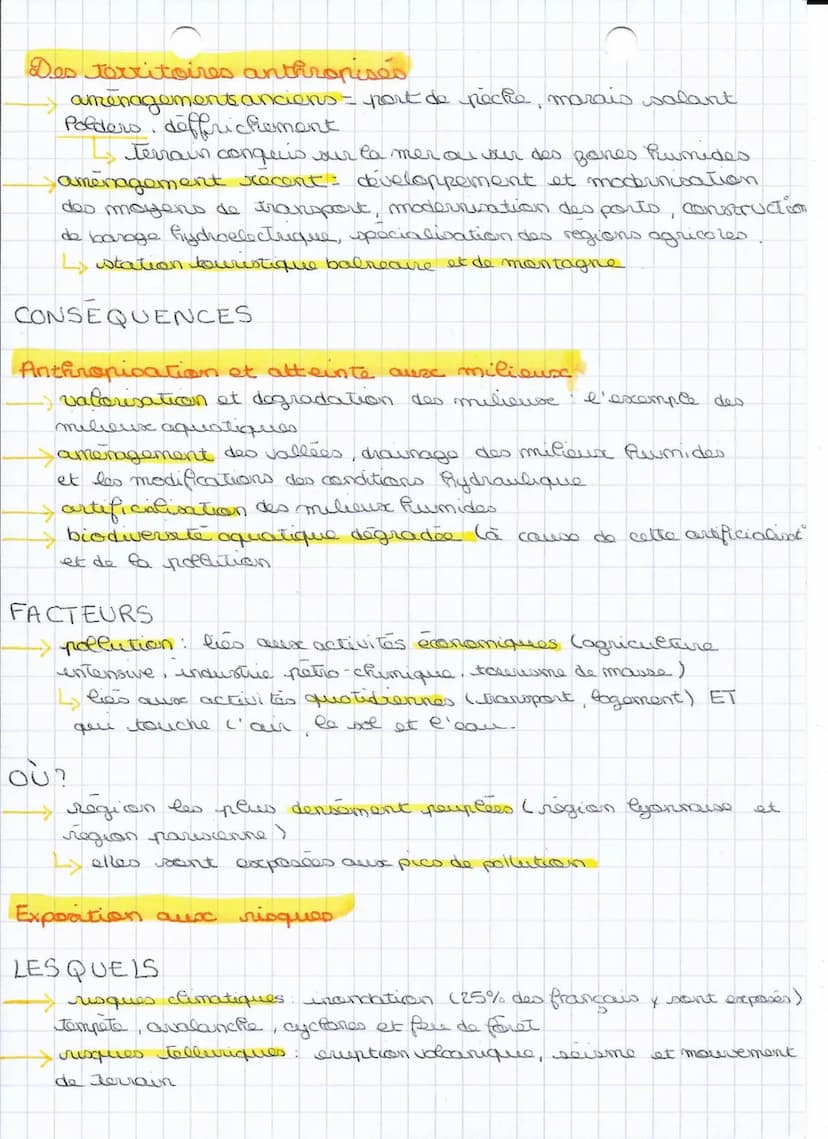 Des territoires anthropisés
→ aménagements anciens = port de pêche, marais salant
Polders, déffrichement
↳ terrain conquis sur la mer ou sur des zones humides
→ aménagement récent = développement et modernisation
des moyens de transport, modernisation des ports, construction
de barage hydroelectrique, spécialisation des régions agricoles.
↳ station touristique balneaire et de montagne
CONSÉQUENCES
Anthropisation et atteinte aux milieux
→ valorisation et dégradation des milieux : l'exemple des
milieux aquatiques
→ aménagement des vallées, drainage des milieux humides
et les modifications des conditions hydraulique
→ artificialisation des milieux humides
→ biodiversité aquatique dégradée (à cause de cette artificialisat°
et de la pollution
FACTEURS
→ pollution : liés aux activités économiques (agriculture
intensive, industrie pétro-chimique, tourisme de masse)
↳ liés aux activités quotidiennes (transport, logement) ET
qui touche l'air, le sol et l'eau.
OÙ?
→ région les plus densément peuplées (région lyonnaise et
région parisienne)
↳ elles sont exposées aux pics de pollution
Exposition aux risques
LESQUELS
→ risques climatiques : inondation (25% des français y sont exposés)
tempête, avalanche, cyclones et feu de fôret
→ risques telluriques : eruption volcanique, séisme et mouvement
de terrain